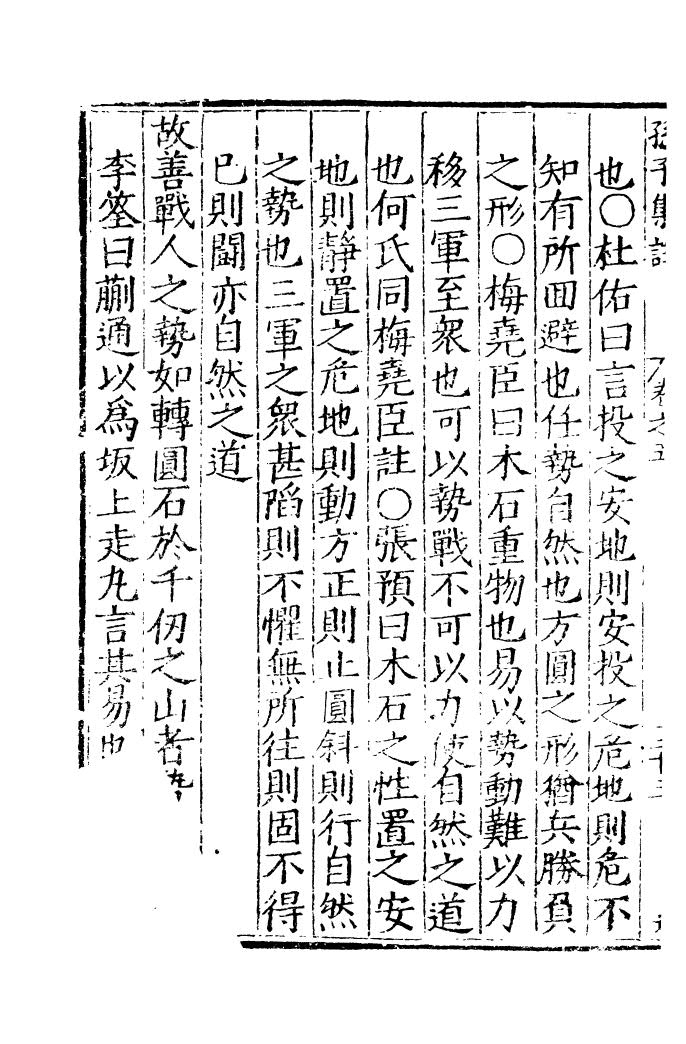 孫子集註 卷之五
也○杜佑曰言投之安地則安投之危地則危不
知有所回避也任勢自然也方圓之形猶兵勝負
之形○梅堯臣曰木石重物也易以勢動難以力
移三軍至衆也可以勢戰不可以力使自然之道
也何氏同梅堯臣註○張預曰木石之性置之安
地則靜置之危地則動方正則止圓斜則行自然
之勢也三軍之衆甚陷則不懼無所往則固不得
已則鬪亦自然之道
故善戰人之勢如轉圓石於千仞之山者
李筌曰蒯通以爲坂上走丸言其易也